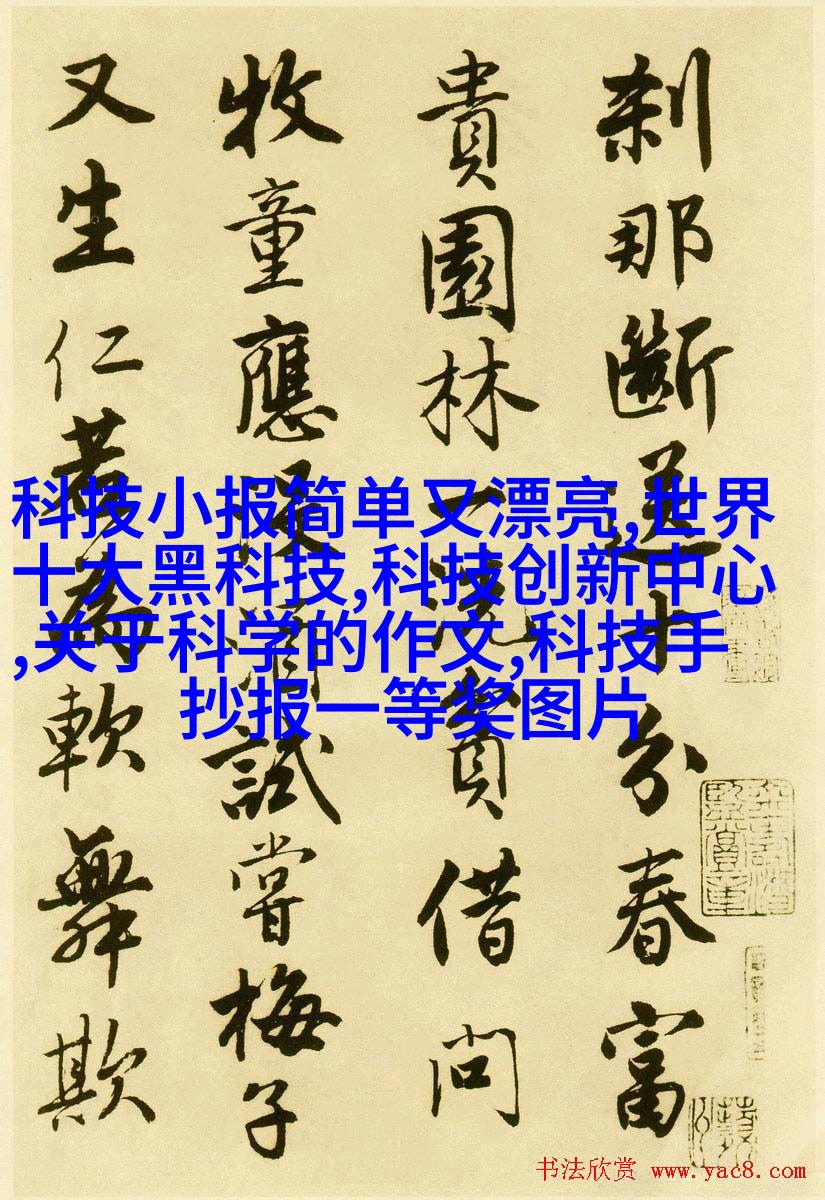 刹那斷送十分春富
貴園林一洗貧借問
牧童應沒酒試嘗梅子
又生仁若為軟舞欺
科技小报简单又漂亮,世界
十大黑科技,科技创新中心
,关于科学的作文,科技手
抄报一等奖图片
书法欣赏 www.yac8.com